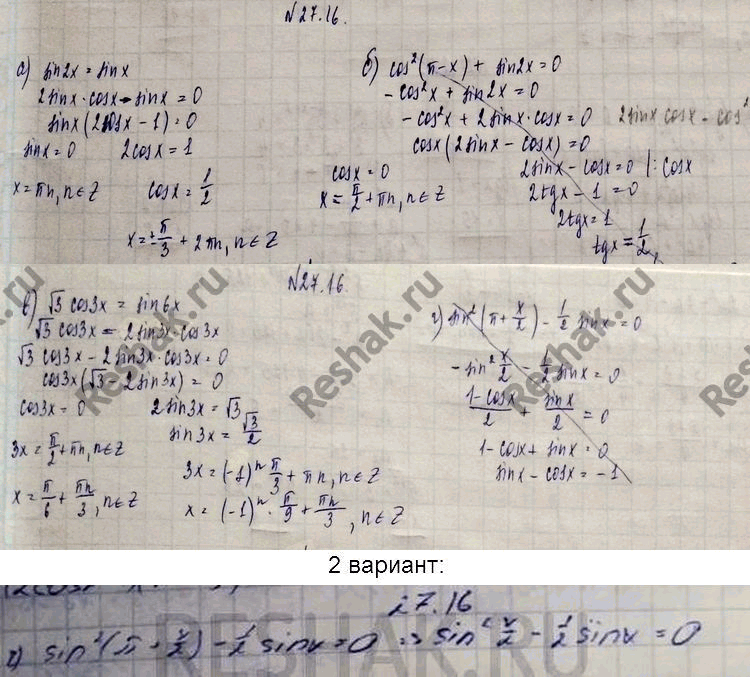 №27.16.
а) sin2x = sinx
2sinx·cosx - sinx = 0
sinx(2cosx - 1) = 0
sinx = 0 2cosx = 1
x = πn, n∈Z cosx = 1/2
x = ±π/3 + 2πn, n∈Z
б) cos²(π-x) + sin2x = 0
-cos²x + sin2x = 0
-cos²x + 2sinx·cosx = 0 2sinx cosx - cos²
cosx(2sinx - cosx) = 0
cosx = 0 2sinx - cosx = 0 |: cosx
x = π/2 + πn, n∈Z 2tgx - 1 = 0
2tgx = 1
tgx = 1/2,
№27.16.
в) √3 cos3x = sin6x
√3 cos3x = 2sin3x·cos3x
√3 cos3x - 2sin3x·cos3x = 0
cos3x(√3 - 2sin3x) = 0
cos3x = 0 2sin3x = √3
sin3x = √3/2
3x = π/2 + πn, n∈Z 3x = (-1)ⁿ π/3 + πn, n∈Z
x = π/6 + πn/3, n∈Z x = (-1)ⁿ · π/9 + πn/3, n∈Z
г) sin²(π + x/2) - 1/2 sinx = 0
-sin² x/2 - 1/2 sinx = 0
1-cosx/2 + sinx/2 = 0
1 - cosx + sinx = 0
sinx - cosx = -1
Reshak.ru
Reshak.ru
Reshak.ru
2 вариант:
27.16
г) sin²(π + x/2) - 1/2 sinx = 0 => sin² x/2 - 1/2 sinx = 0
RESHAK.RU